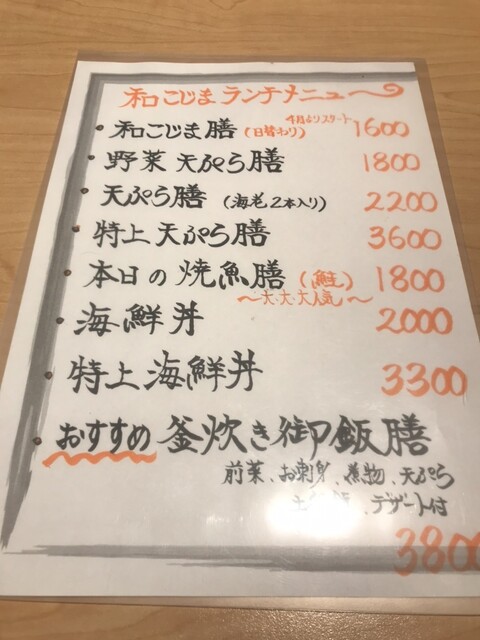 和こじまランチメニュー
4月よりスタート
和こじま膳(日替わり) 1600
野菜天ぷら膳 1800
天ぷら膳(海老2本入り) 2200
特上天ぷら膳 3600
本日の焼魚膳(鮭) 1800
～大・大・大人気～
海鮮丼 2000
特上海鮮丼 3300
おすすめ 釜炊き御飯膳
前菜、お刺身、煮物、天ぷら
、デザート付
3800